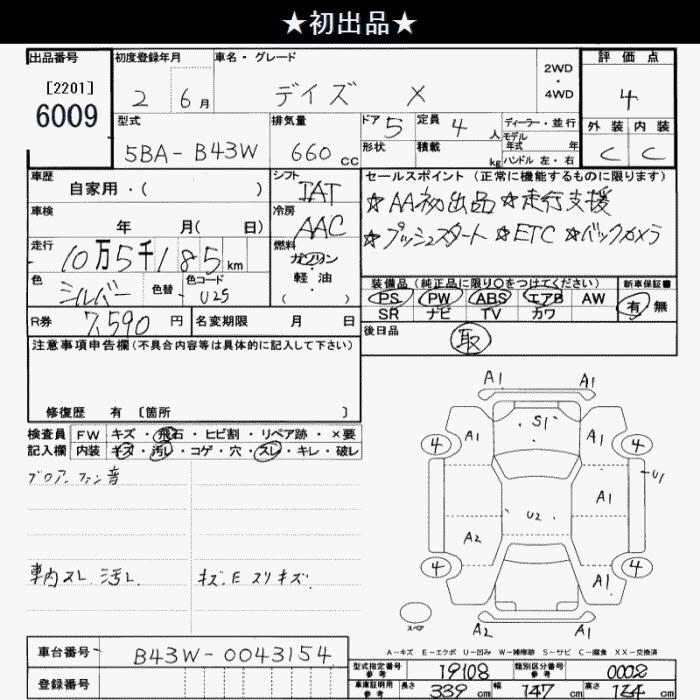 ★初出品★
出品番号
[2201]
6009
初度登録年月
2 6月
車名・グレード
デイズ X
2WD
・
4WD
評価点
4
外装 内装
C C
型式
5BA-B43W
排気量
660 cc
ドア 5
定員 4 人
形状
積載 kg
ディーラー・並行
モデル
年式 年
ハンドル 左・右
車歴
自家用・( )
シフト
IAT
車検
年 月( 日)
冷房
AAC
走行
10万5千185 km
燃料
ガソリン
軽・油
・( )
色
シルバー
色替
色コード
U25
R券
7,590 円
名変期限 月 日
セールスポイント(正常に機能するものに限ります)
☆AA初出品☆走行支援
☆プッシュスタート☆ETC☆バックカメラ
装備品(純正品に限り〇をつけてください)
新車保証書
PS PW ABS エアB AW
SR ナビ TV カワ
有 無
後日品
取
注意事項申告欄(不具合内容等は具体的に記入して下さい)
修復歴 有 〔箇所 〕
検査員
記入欄
FW キズ・飛石・ヒビ割・リペア跡・×要
内装 キズ・汚レ・コゲ・穴・スレ・キレ・破レ
ブロアーファン音
車内スレ 汚レ
キズ.E スリキズ
A1 A1
4 A1 S1 A1 4
A1 U1
U2
A2
4 A1 4
スペア
A2 A1
A-キズ E-エクボ U-凹み W-補修跡 S-サビ C-腐食 XX-交換済
車台番号
B43W-0043154
登録番号
型式指定番号
参考
19108
類別区分番号
参考
0002
車庫証明用
参考
長さ 339 cm 幅 147 cm 高さ 164 cm